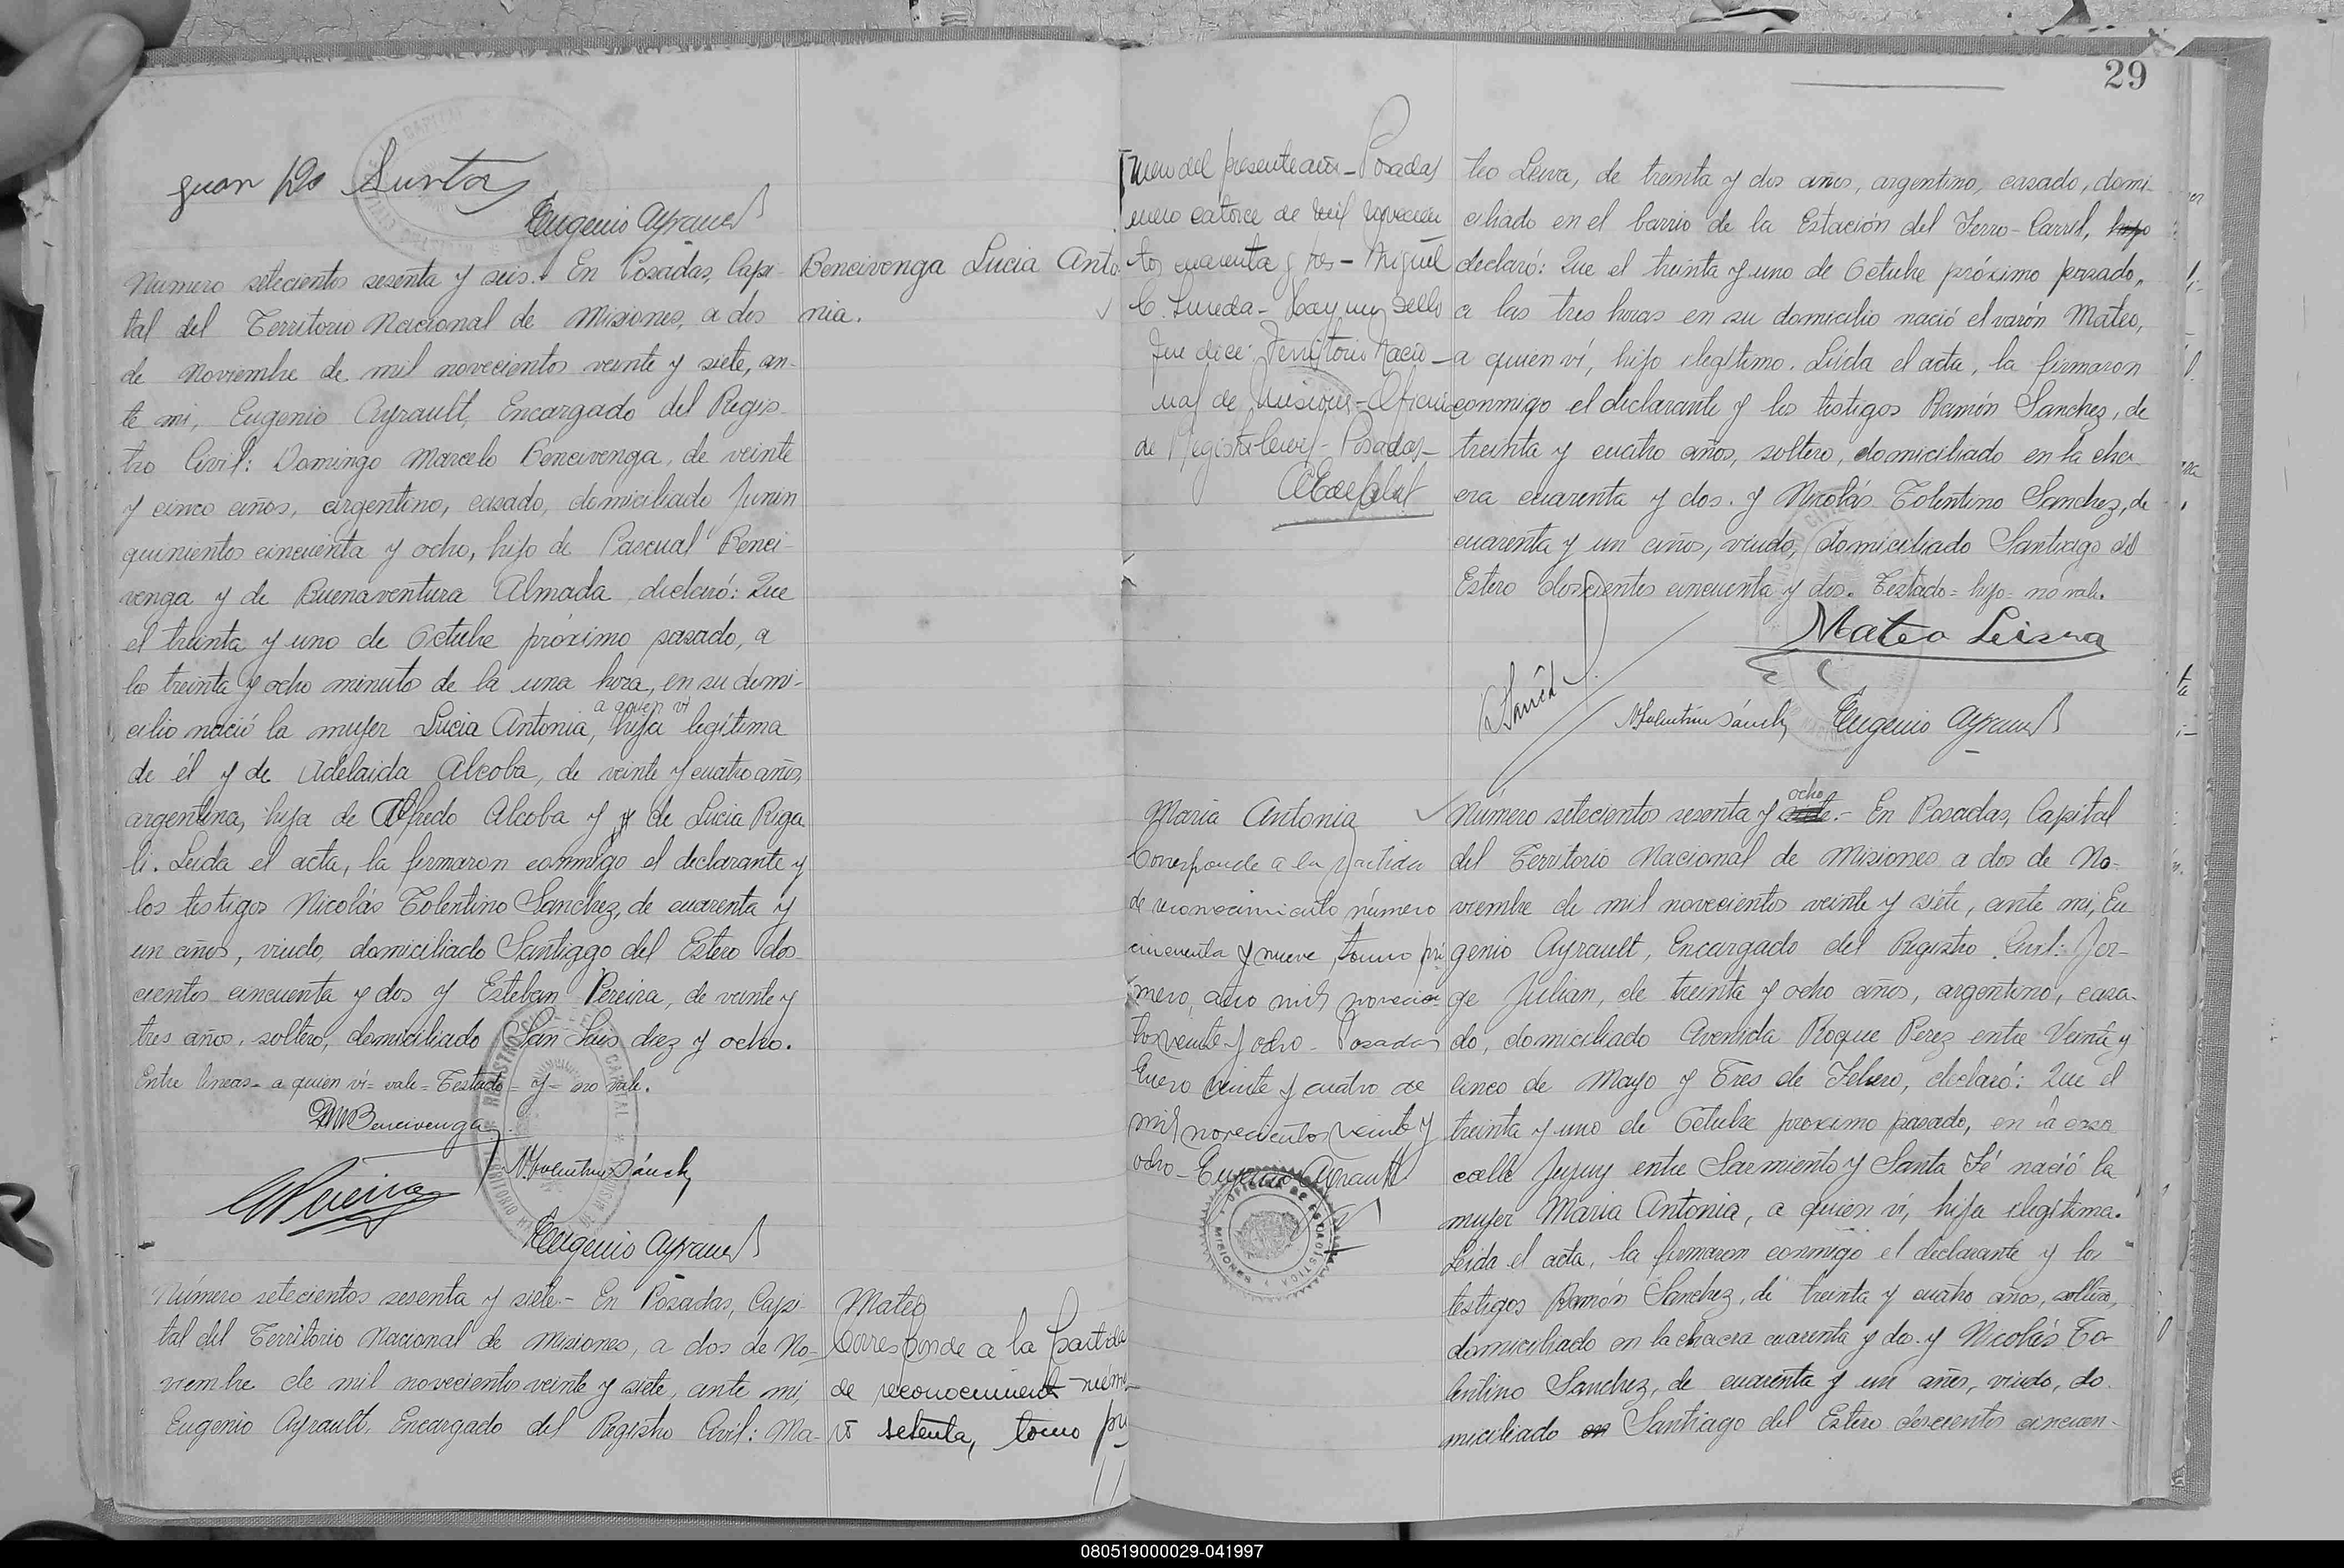 Juan
Eugenio Ayrault
Numero setecientos sesenta y seis. En Posadas, Capi-
tal del Territorio Nacional de Misiones, a dos
de Noviembre de mil novecientos veinte y siete, an-
te mi, Eugenio Ayrault, Encargado del Regis-
tro Civil: Domingo Marcelo Bencivenga, de veinte
y cinco años, argentino, casado, domiciliado Junin
quinientos cincuenta y ocho, hijo de Pascual Benci-
venga y de Buenaventura Almada declaró: Que
el treinta y uno de Octubre próximo pasado, a
los treinta y ocho minutos de la una hora, en su domi-
a quien vi
cilio nació la mujer Lucia Antonia, hija legítima
de él y de Adelaida Alcoba, de veinte y cuatro años,
argentina, hija de Alfredo Alcoba y y de Lucia Riga
li. Leida el acta, la firmaron conmigo el declarante y
los testigos Nicolás Tolentino Sanchez, de cuarenta y
un años, viudo, domiciliado Santiago del Estero dos-
cientos cincuenta y dos y Esteban Pereira, de veinte y
tres años, soltero, domiciliado San Luis diez y ocho.
Entre lineas = a quien vi = vale = Testado = y = no vale.
DMBencivenga
NTolentino Sánchez
EPereira
Eugenio Ayrault
Bencivenga Lucia Anto-
nia.
Número setecientos sesenta y siete.- En Posadas, Capi-
tal del Territorio Nacional de Misiones, a dos de No-
viembre de mil novecientos veinte y siete, ante mi,
Eugenio Ayrault, Encargado del Registro Civil: Ma-
Mateo
Corresponde a la Partida
de reconocimiento núme-
ro setenta, tomo pri
29
mero del presente año - Posadas
enero catorce de mil novecien
tos cuarenta y tres - Miguel
C. Sureda - Hay un sello
que dice: Territorio Nacio-
nal de Misiones - Oficina
de Registro Civil - Posadas -
teo Leiva, de treinta y dos años, argentino, casado, domi-
ciliado en el barrio de la Estación del Ferro-Carril, hijo
declaró: Que el treinta y uno de Octubre próximo pasado,
a las tres horas en su domicilio nació el varón Mateo,
a quien ví, hijo ilegítimo. Leída el acta, la firmaron
conmigo el declarante y los testigos Ramón Sanchez, de
treinta y cuatro años, soltero, domiciliado en la cha-
cra cuarenta y dos. y Nicolás Tolentino Sanchez, de
cuarenta y un años, viudo, domiciliado Santiago del
Estero doscientos cincuenta y dos. Testado = hijo = no vale.
Mateo Leiva
NTolentino Sánchez
Eugenio Ayrault
Maria Antonia
Corresponde a la partida
de reconocimiento número
cincuenta y nueve, tomo pri
mero, año mil novecien-
tos veinte y ocho - Posadas
Enero veinte y cuatro de
mil novecientos veinte y
ocho - Eugenio Ayrault
ocho
Número setecientos sesenta y siete.- En Posadas, Capital
del Territorio Nacional de Misiones a dos de No-
viembre de mil novecientos veinte y siete, ante mi, Eu
genio Ayrault, Encargado del Registro Civil: Jor-
ge Julian, de treinta y ocho años, argentino, casa-
do, domiciliado Avenida Roque Perez entre Veinte y
cinco de Mayo y Tres de Febrero, declaró: Que el
treinta y uno de Octubre proximo pasado, en la casa
calle Jujuy entre Sarmiento y Santa Fé nació la
mujer Maria Antonia, a quien vi, hija ilegítima.
Leida el acta, la firmaron conmigo el declarante y los
testigos Ramón Sanchez, de treinta y cuatro años, soltero,
domiciliado en la chacra cuarenta y dos. y Nicolás To-
lentino Sanchez, de cuarenta y un años, viudo, do-
miciliado en Santiago del Estero doscientos cincuen-
080519000029-041997